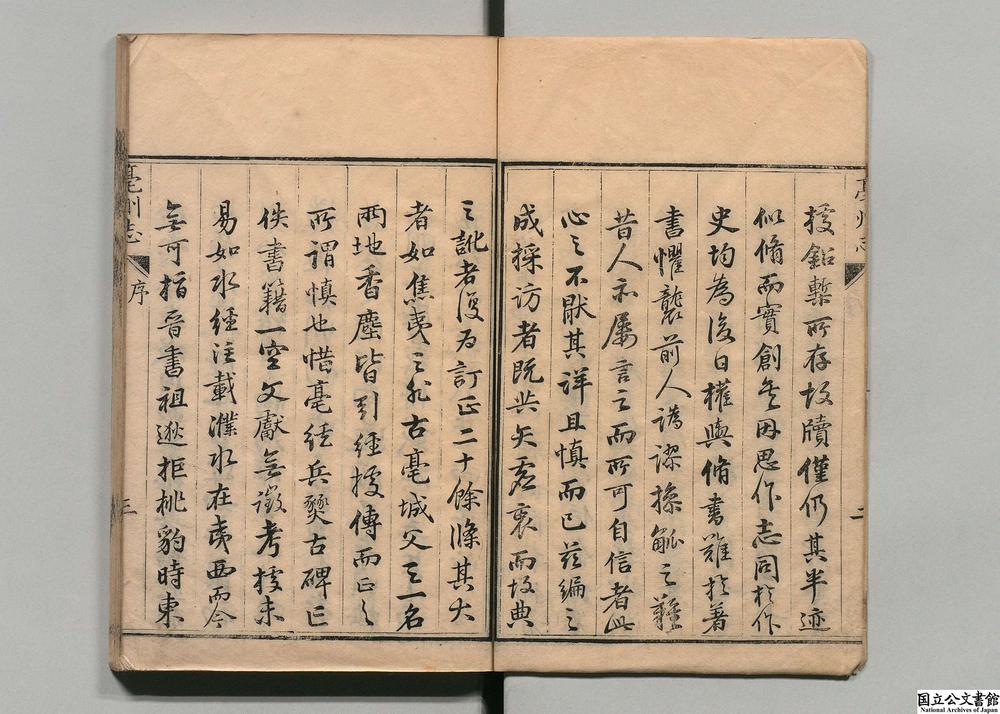 授鉛槧所存故牘僅仍其半迹
似脩而實創矣因思作志同於作
史均為後日權輿脩書難於著
書懼襲前人譌謬操觚之難
昔人亦屢言之而所可自信者此
心之不厭其詳且慎而已茲編之
成採訪者既共矢虛衷而故典
之訛者復為訂正二十餘條其大
者如焦夷之非古亳城父之一名
兩地香塵皆引經據傳而正之
所謂慎也惜亳經兵燹古碑已
佚書籍一空文獻無徵考據未
易如水經注載濮水在夷西而今
無可指晉書祖逖拒桃豹時東
亳州志
序
二
亳州志
三
国立公文書館
National Archives of Japan